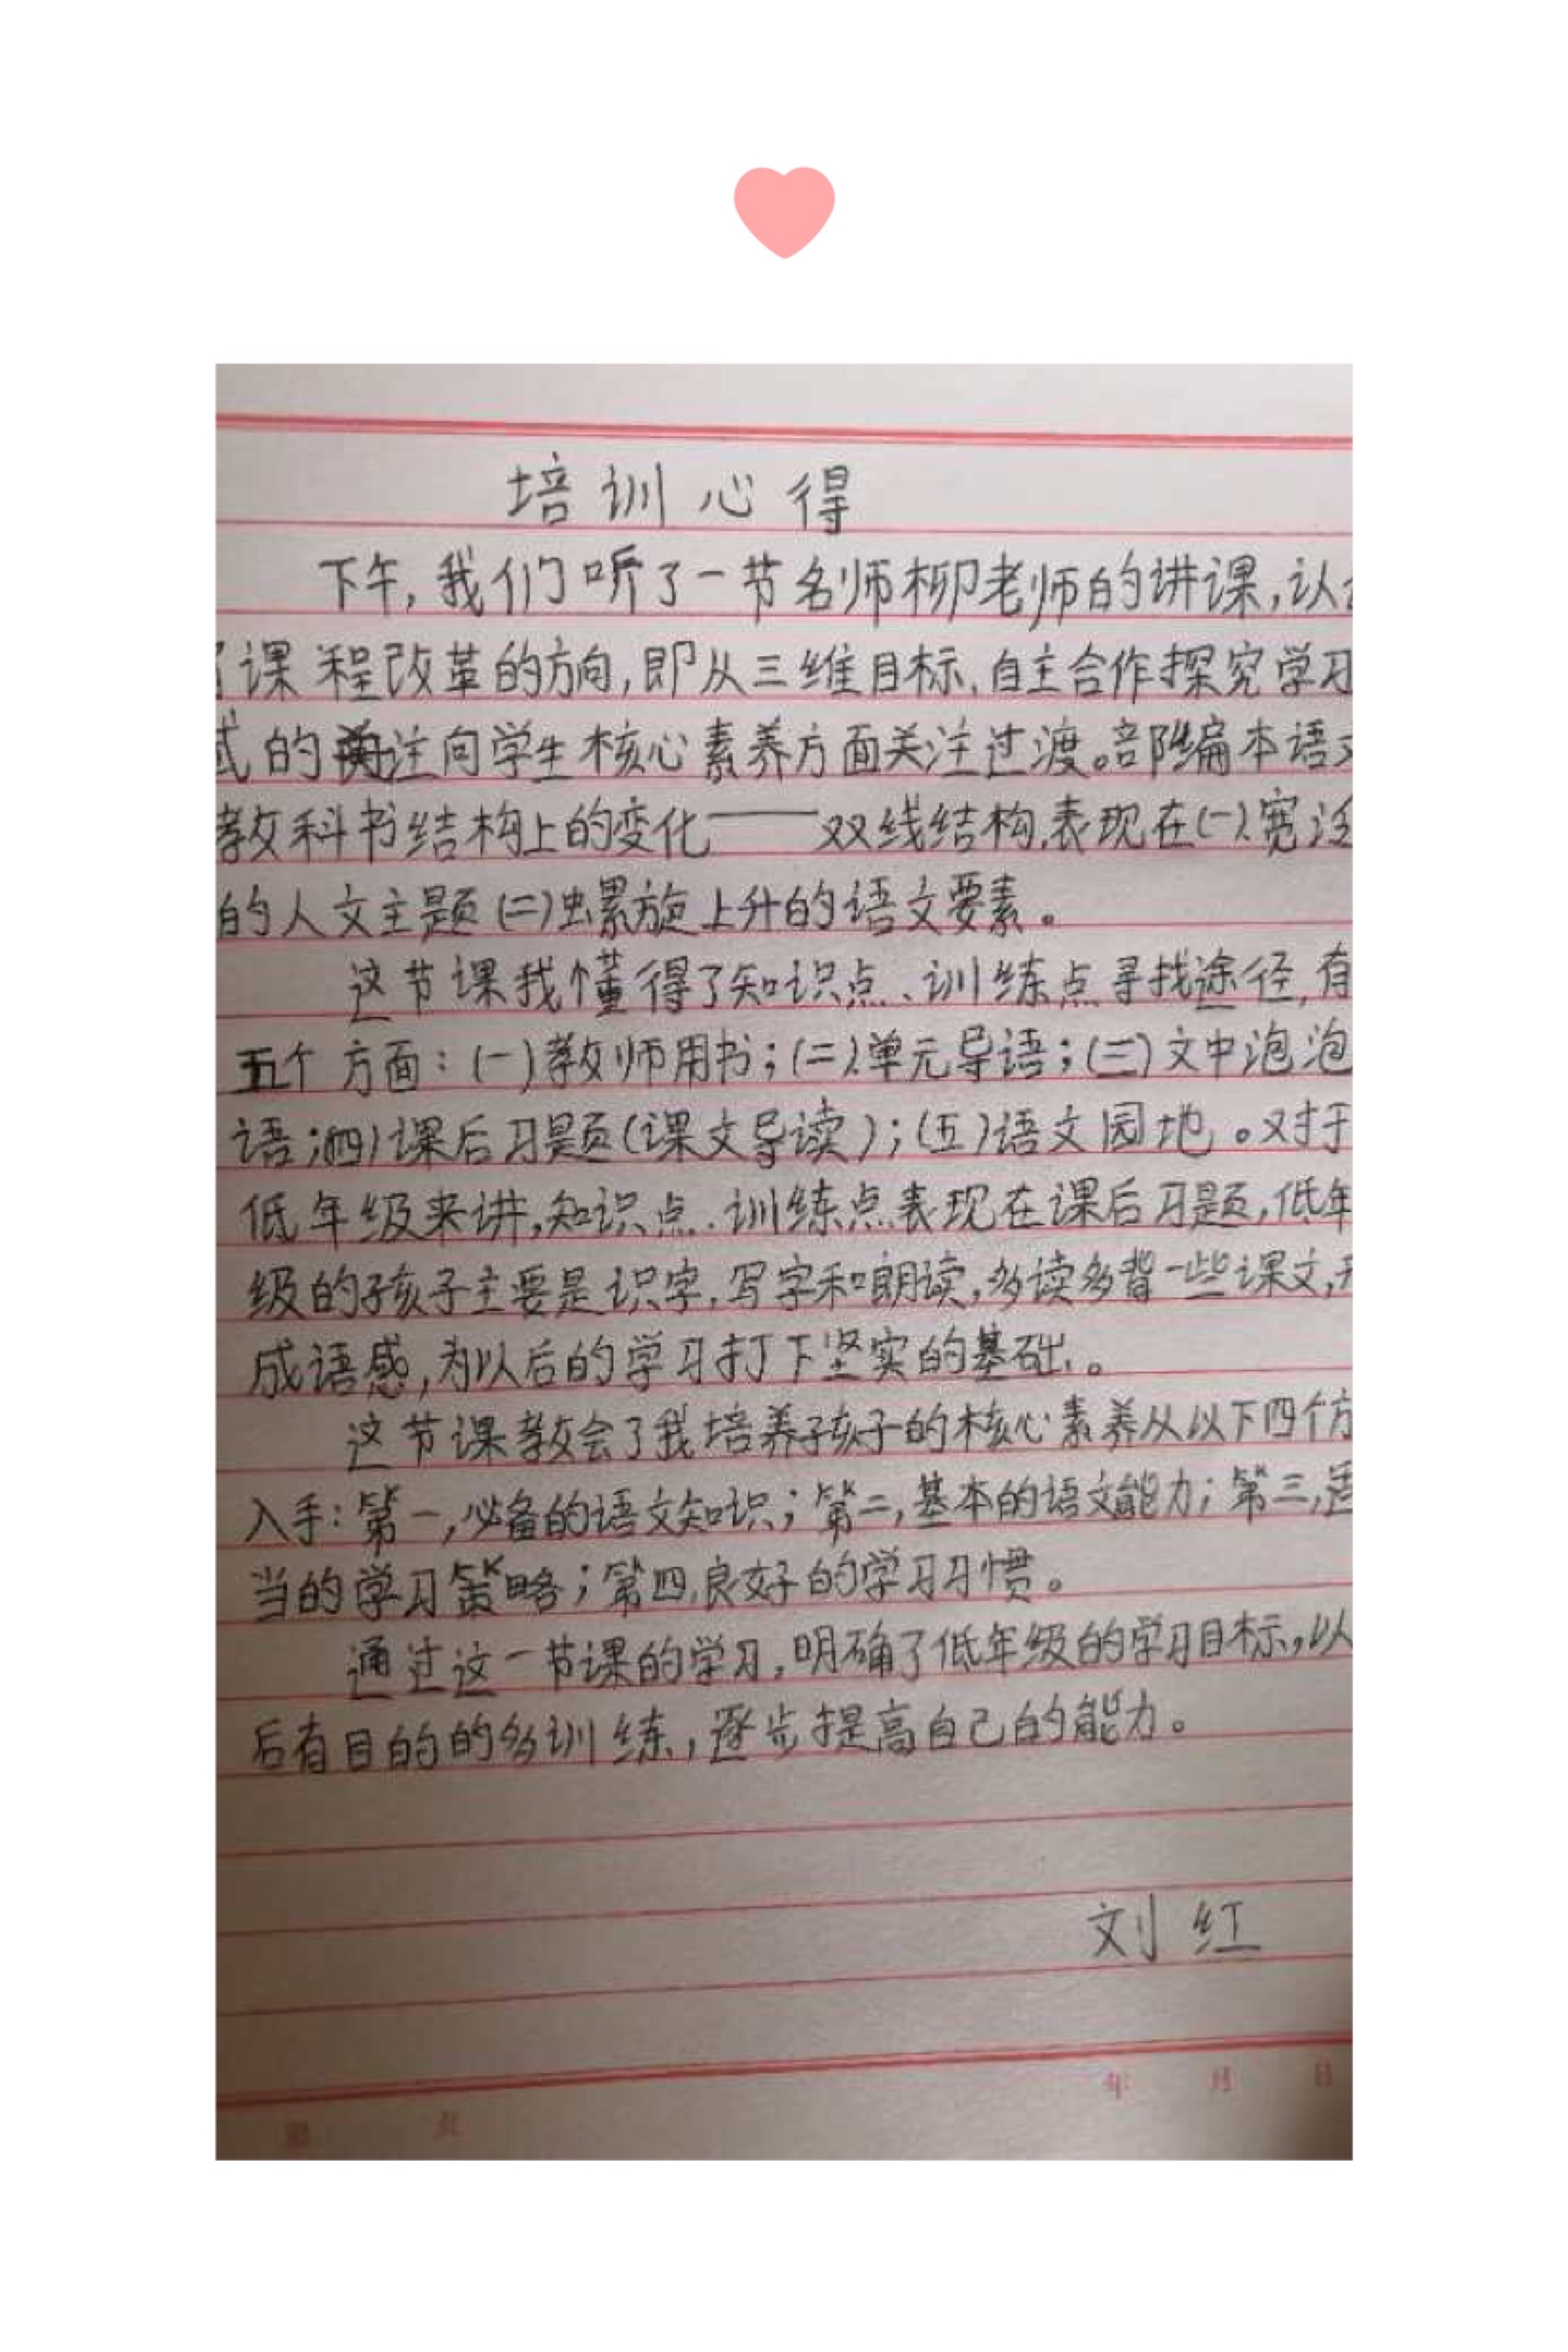 培训心得
下午,我们听了一节名师柳老师的讲课,认
课程改革的方向,即从三维目标、自主合作探究学习
式的关注向学生核心素养方面关注过渡。部编本语文
教科书结构上的变化——双线结构,表现在(一)、宽泛
的人文主题(二)螺旋上升的语文要素。
这节课我懂得了知识点、训练点寻找途径,有
五个方面:(一)教师用书;(二)、单元导语;(三)文中泡泡
语;(四)课后习题(课文导读);(五)语文园地。对于
低年级来讲,知识点、训练点表现在课后习题,低年
级的孩子主要是识字、写字和朗读,多读多背一些课文,
成语感,为以后的学习打下坚实的基础。
这节课教会了我培养孩子的核心素养从以下四个方
入手:第一,必备的语文知识;第二,基本的语文能力;第三,适
当的学习策略;第四,良好的学习习惯。
通过这一节课的学习,明确了低年级的学习目标,以
后有目的的多训练,逐步提高自己的能力。
刘红
年 月 日
第 页